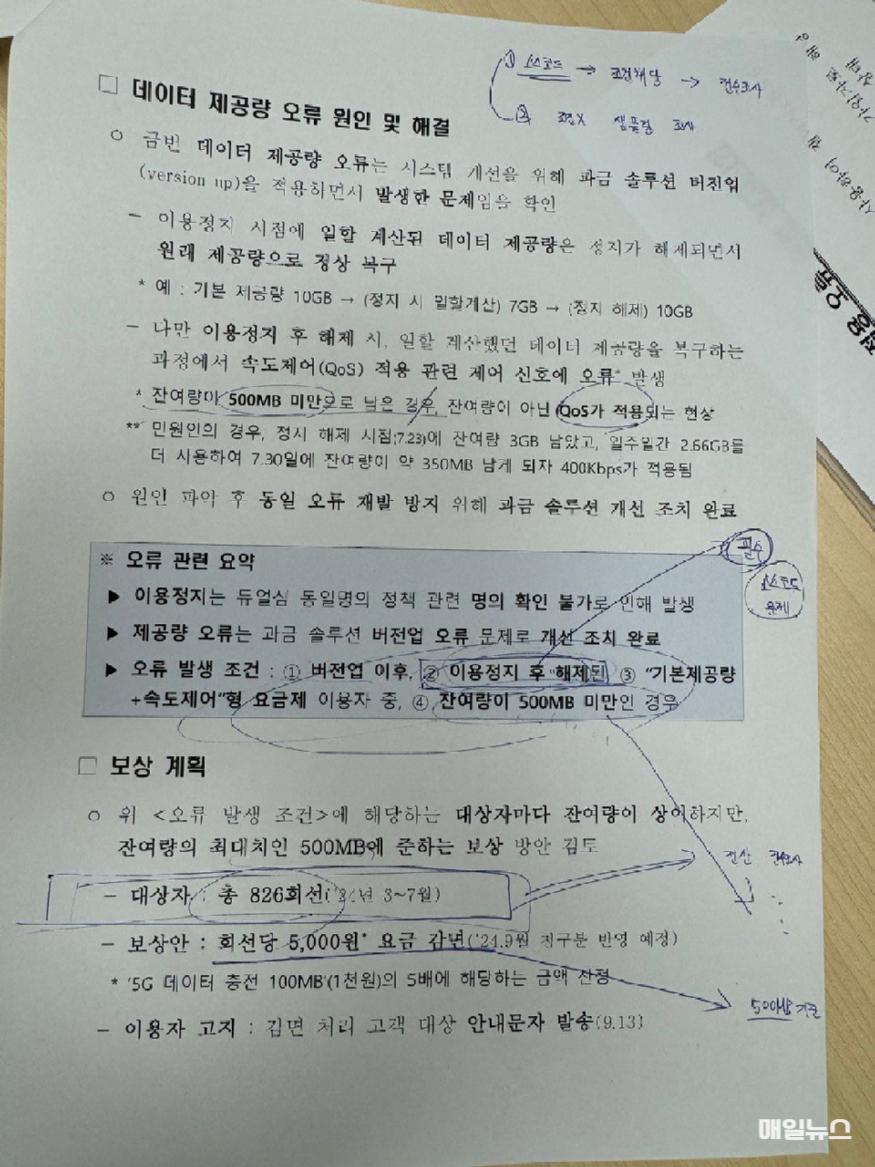 □ 데이터 제공량 오류 원인 및 해결
① 소스코드 → 조건해당 → 전수조사
② 조건X 샘플링 조사
○ 금번 데이터 제공량 오류는 시스템 개선을 위해 과금 솔루션 버전업
(version up)을 적용하면서 발생한 문제임을 확인
- 이용정지 시점에 일할 계산된 데이터 제공량은 정지가 해제되면서
원래 제공량으로 정상 복구
* 예 : 기본 제공량 10GB → (정지 시 일할계산) 7GB → (정지 해제) 10GB
- 다만 이용정지 후 해제 시, 일할 계산했던 데이터 제공량을 복구하는
과정에서 속도제어(QoS) 적용 관련 제어 신호에 오류* 발생
* 잔여량이 500MB 미만으로 남은 경우, 잔여량이 아닌 QoS가 적용되는 현상
** 민원인의 경우, 정지 해제 시점(7.23)에 잔여량 3GB 남았고, 일주일간 2.66GB를
더 사용하여 7.30일에 잔여량이 약 350MB 남게 되자 400Kbps가 적용됨
○ 원인 파악 후 동일 오류 재발 방지 위해 과금 솔루션 개선 조치 완료
필수
소스코드
문제
※ 오류 관련 요약
▶ 이용정지는 듀얼심 동일명의 정책 관련 명의 확인 불가로 인해 발생
▶ 제공량 오류는 과금 솔루션 버전업 오류 문제로 개선 조치 완료
▶ 오류 발생 조건 : ① 버전업 이후, ② 이용정지 후 해제된 ③ "기본제공량
+속도제어"형 요금제 이용자 중, ④ 잔여량이 500MB 미만인 경우
□ 보상 계획
○ 위 <오류 발생 조건>에 해당하는 대상자마다 잔여량이 상이하지만,
잔여량의 최대치인 500MB에 준하는 보상 방안 검토
전산 전수조사
- 대상자 : 총 826회선('24년 3~7월)
- 보상안 : 회선당 5,000원* 요금 감면('24.9월 청구분 반영 예정)
* '5G 데이터 충전 100MB'(1천원)의 5배에 해당하는 금액 산정
500MB 기준
- 이용자 고지 : 감면 처리 고객 대상 안내문자 발송(9.13)
매일뉴스